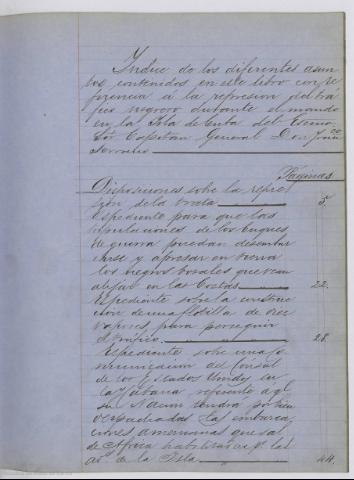 Yndice de los diferentes asun
tos contenidos en este libro con re
ferencia á la represion del trá
fico negrero durante el mando
en la Isla de Cuba del Excmo.
Sor. Capitan General Don Franco.
Serrano
Páginas
Disposiciones sobre la repre
sion de la trata 5.
Espediente para que las
tripulaciones de los buques
de guerra puedan desembar
carse y apresar en tierra
los negros bozales que vean
alijar en las Costas 22.
Espediente sobre la construc
cion de una flotilla de diez
vapores para perseguir
el tráfico 28.
Espediente sobre una co
municacion del Cónsul
de los Estados Unidos en
la Habana referente á que
su Nacion tendrá
despachadas las embarca
ciones americanas que sal
de Africa habilitadas pa. las
de la Isla 44.